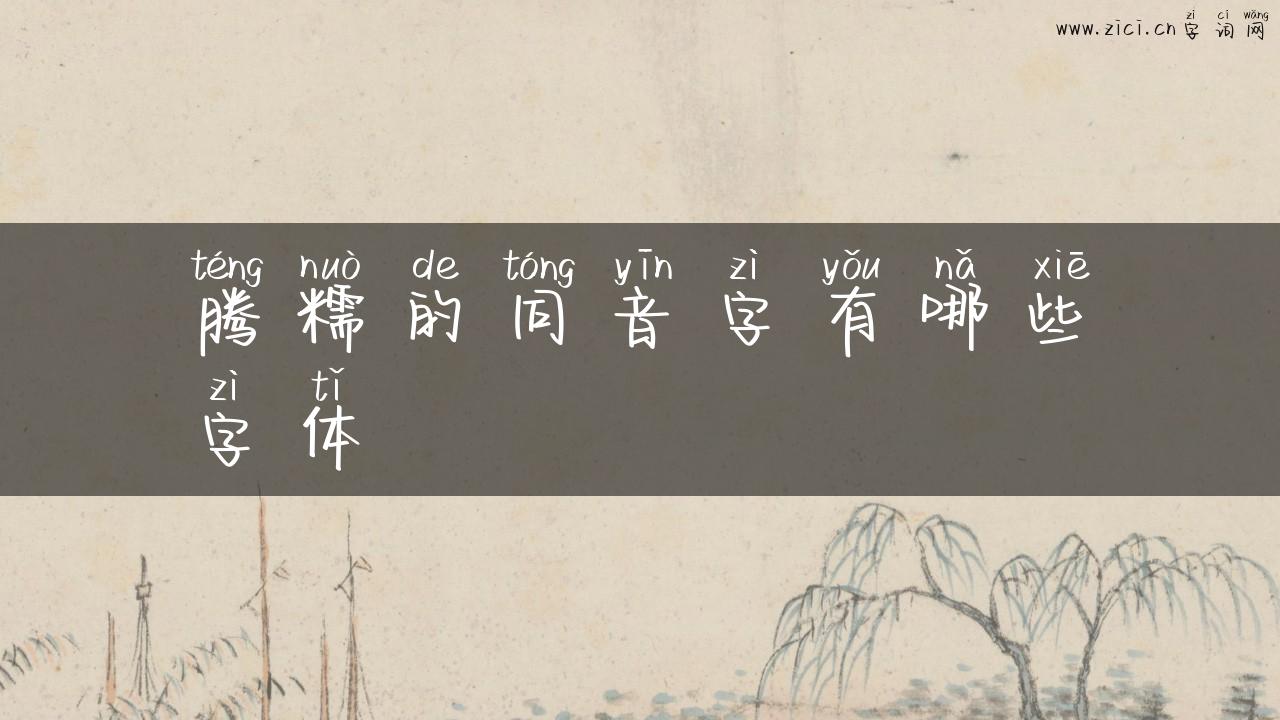 zì cí wǎng
www.zici.cn 字词网
téng nuò de tóng yīn zì yǒu nǎ xiē
腾糯的同音字有哪些
zì tǐ
字体